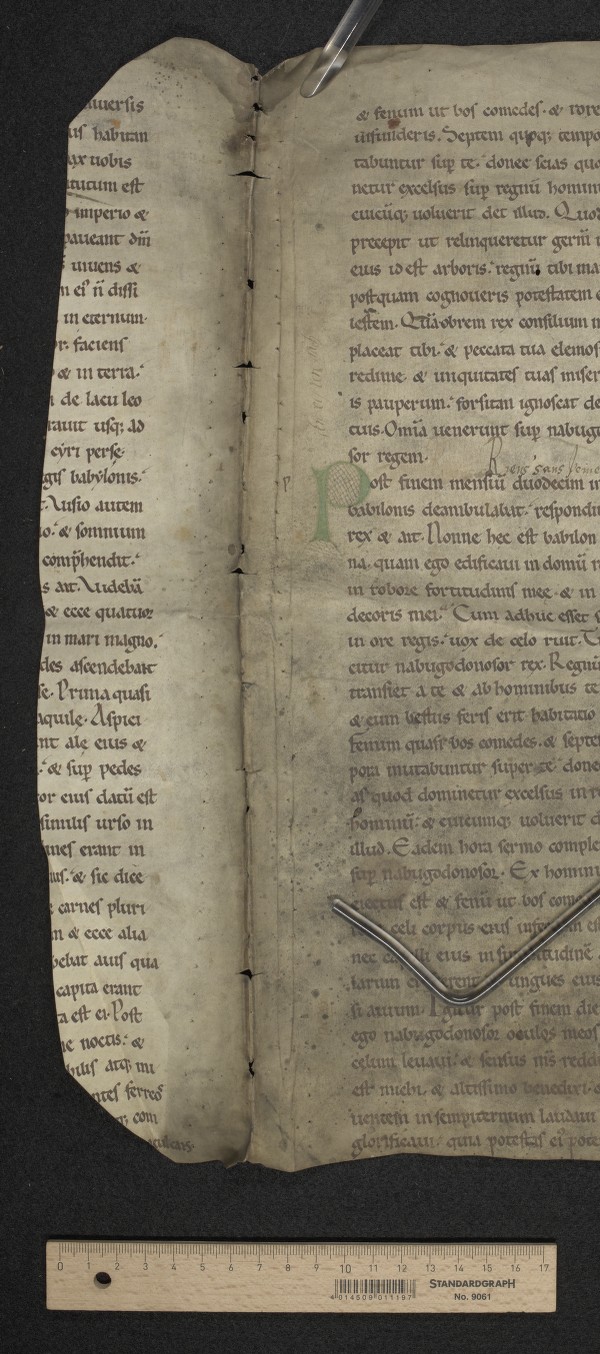 niuersis
us habitan
ax uobis
itutum est
imperio &
paueant dm̄
uiuens &
n ei' n̄ dissi
in eternum.
or. faciens
& in terra.
de lacu leo
rauit usq; ad
cyri perse.
gis babylonis.
Visio autem
io. & somnium
comp̄hendit.
s ait. Videbā
& ecce quatuor
in mari magno.
des ascendebant
se. Prima quasi
aquile. Aspici
nt ale eius &
& sup pedes
or eius datū est
similis urso in
ines erant in
ius. & sic dice
carnes pluri
m & ecce alia
bebat auis qua
capita erant
ta est ei. Post
ne noctis. &
bilis atq; mi
ntes ferreos
com
& fenum ut bos comedes. & rore
infunderis. Septem quoq; tempo
tabuntur sup te. donec scias quo
netur excelsus sup regnū homin
cuicūq; uoluerit det illud. Quod
precepit ut relinqueretur germ̄
eius id est arboris. regnū tibi ma
postquam cognoueris potestatem
lestem. Quāobrem rex consilium m
placeat tibi. & peccata tua elemos
redime. & iniquitates tuas miser
is pauperum. forsitan ignoscat de
ctis tuis. Omīa uenerunt sup nabug
sor regem.
Post finem mensiū duodecim in
babilonis deambulabat. respondit
rex & ait. Nonne hec est babilon
na. quam ego edificaui in domū r
in robore fortitudinis mee. & in
decoris mei. Cum adhuc esset s
in ore regis. uox de celo ruit. T
citur nabugodonosor rex. Regnū
transiet a te & ab hominibus te
& cum bestiis feris erit habitatio
fenum quasi bos comedes. & septe
pora mutabuntur super te. done
as quod dominetur excelsus in re
hominū. & cuicumq; uoluerit d
illud. Eadem hora sermo comple
sup nabugodonosor. Ex homini
eiectus est & fenū ut bos com
celi corpus eius infe
nec capilli eius in similitudinē
larum crescerent ungues eius
si auium. Igitur post finem die
ego nabugodonosor oculos meos
celum leuaui. & sensus m̄s reddi
est michi. & altissimo benedixi.
uentem in sempiternum laudaui
glorificaui. quia potestas ei' pote
0 1 2 3 4 5 6 7 8 9 10 11 12 13 14 15 16 17
4 014509 011197
STANDARDGRAPH
No. 9061